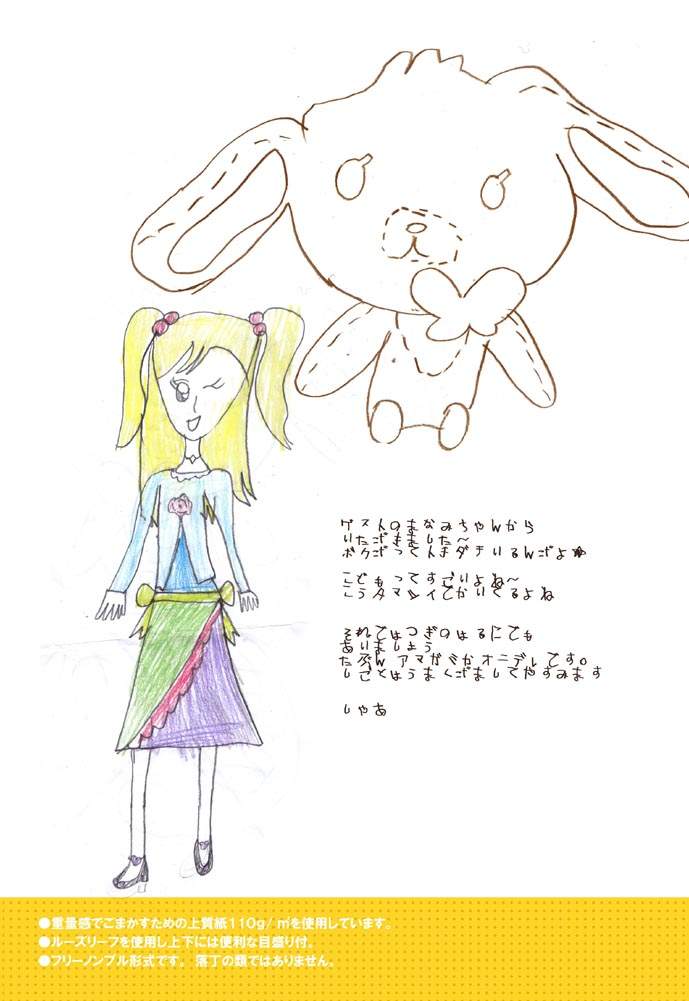 ゲストのまなみちゃんから
いただきました～
ボクだってトモダチいるんだよ
こどもってすごいよね～
こうタマシイでかいてるよね
それではつぎのはるにでも
あいましょう
たぶん アマガミかオニデレです。
しごとはうまくだましてやすみます
しゃあ
●重量感でごまかすための上質紙110g/㎡を使用しています。
●ルーズリーフを使用し上下には便利な目盛り付。
●フリーノンブル形式です。落丁の類ではありません。